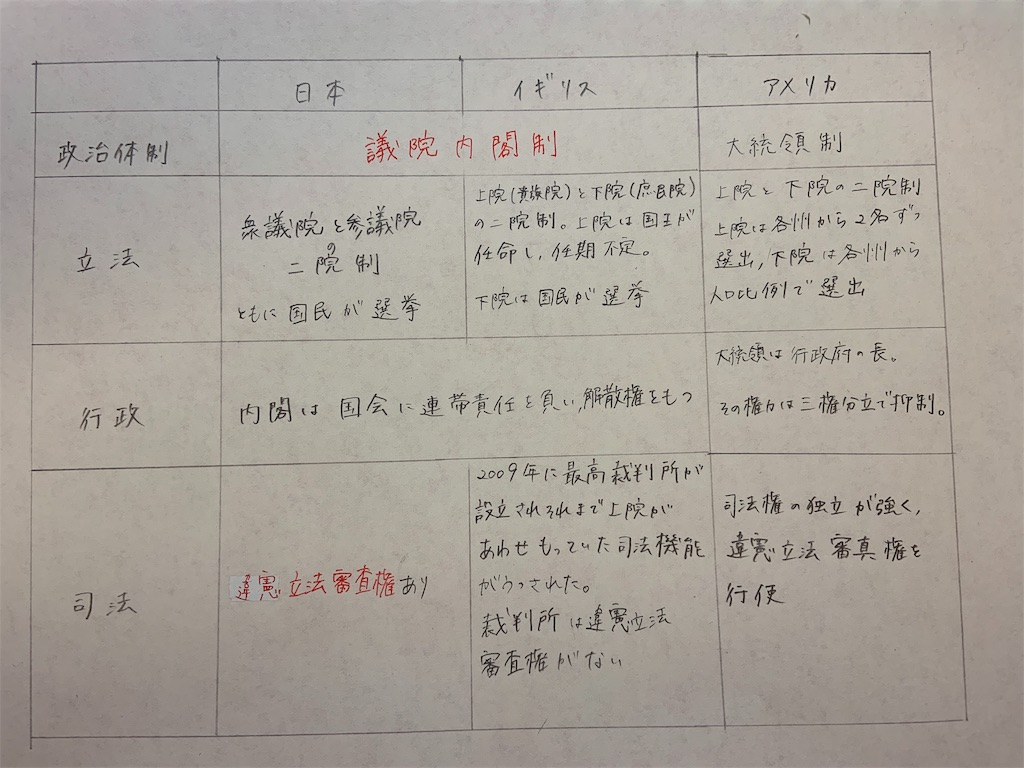 日本 イギリス アメリカ
政治体制 議院内閣制 大統領制
立法
衆議院と参議院
の
二院制
ともに国民が選挙
上院(貴族院)と下院(庶民院)
の二院制。上院は国王が
任命し、任期不定。
下院は国民が選挙
上院と下院の二院制
上院は各州から2名ずつ
選出,下院は各州から
人口比例で選出
行政
内閣は国会に連帯責任を負い,解散権をもつ
大統領は行政府の長。
その権力は三権分立で抑制。
司法
違憲立法審査権あり
2009年に最高裁判所が
設立されそれまで上院が
あわせもっていた司法機能
がうつされた。
裁判所は違憲立法
審査権がない
司法権の独立が強く,
違憲立法審真権を
行使